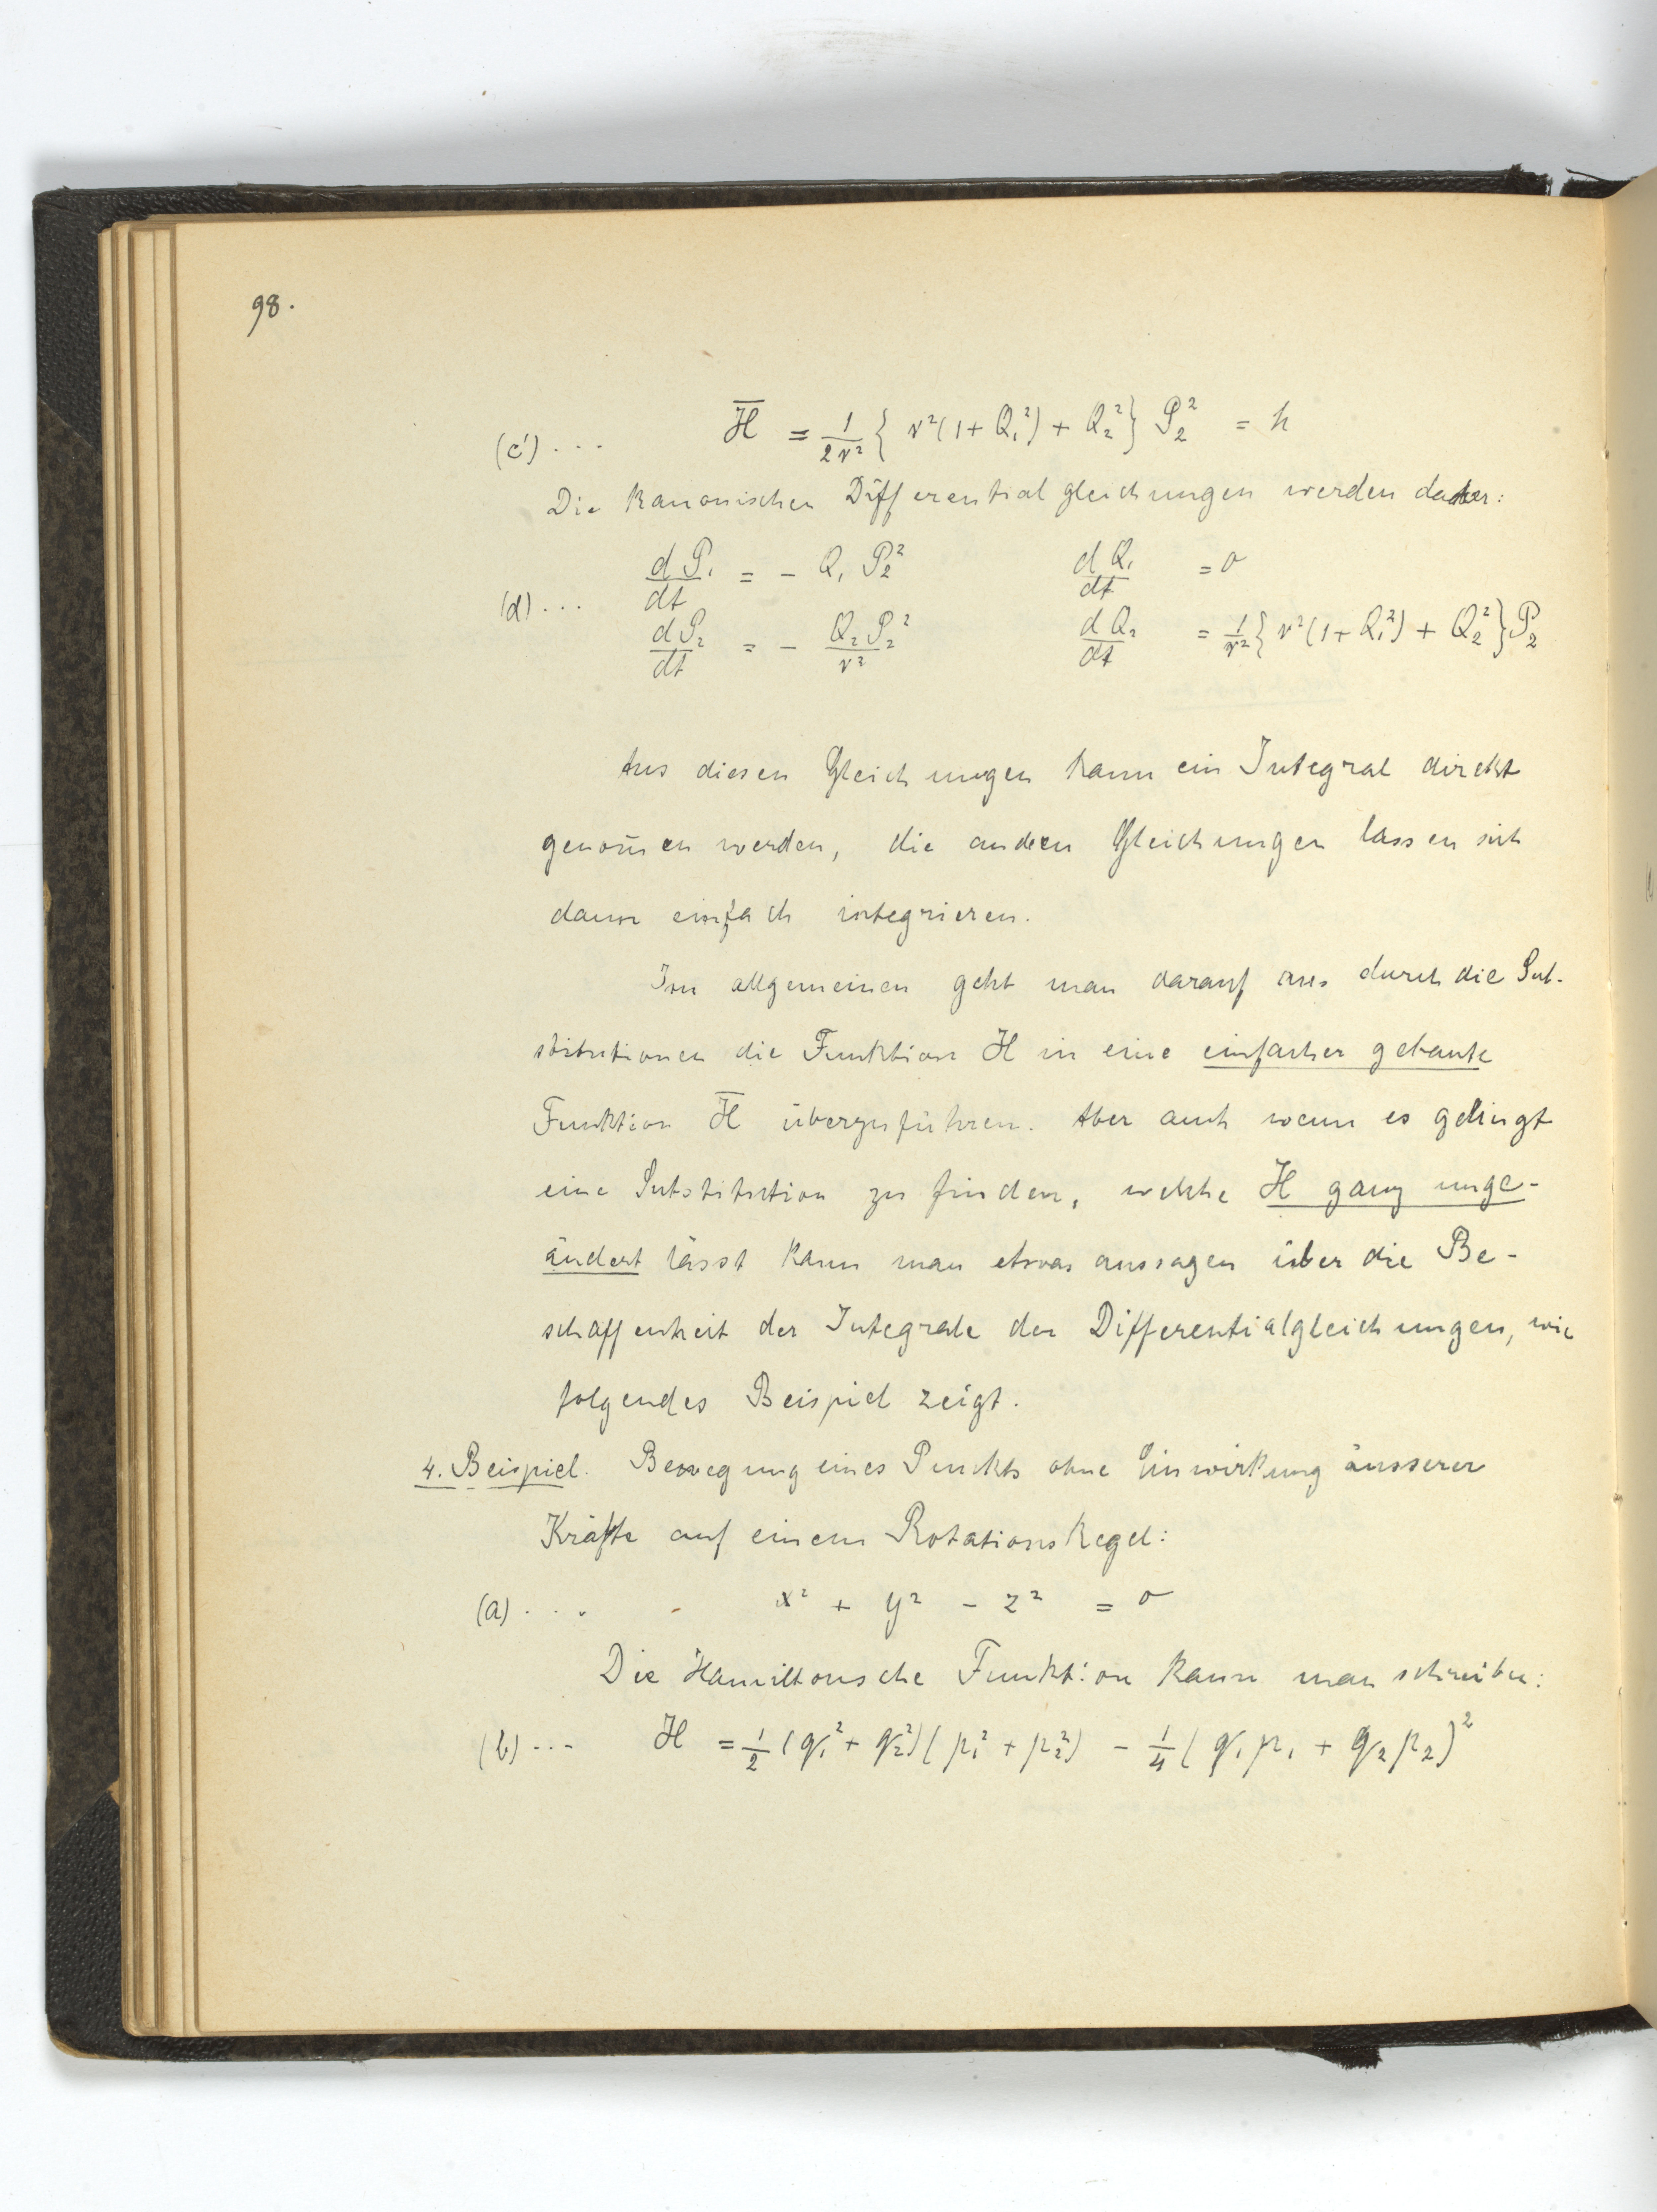 98.
(c') . . . H̅ = 1/2r² { r²(1+Q₁²) + Q₂² } P₂² = h
Die kanonischen Differentialgleichungen werden daher:
dP₁/dt = - Q₁ P₂² dQ₁/dt = 0
(d) . . .
dP₂/dt = - Q₂P₂²/r² dQ₂/dt = 1/r² { r²(1+Q₁²) + Q₂² } P₂
Aus diesen Gleichungen kann ein Integral direkt
genom̅en werden, die andern Gleichungen lassen sich
dann einfach integrieren.
Im allgemeinen geht man darauf aus durch die Sub-
stitutionen die Funktion H in eine einfacher gebaute
Funktion H̅ überzuführen. Aber auch wenn es gelingt
eine Substitution zu finden, welche H ganz unge-
ändert lässt kann man etwas aussagen über die Be-
schaffenheit der Integrale der Differentialgleichungen, wie
folgendes Beispiel zeigt.
4. Beispiel. Bewegung eines Punkts ohne Einwirkung äusserer
Kräfte auf einem Rotationskegel:
(a) . . . x² + y² - z² = 0
Die Hamiltonsche Funktion kann man schreiben:
(b) . . . H = 1/2 (q₁² + q₂²)(p₁² + p₂²) - 1/4 (q₁p₁ + q₂p₂)²